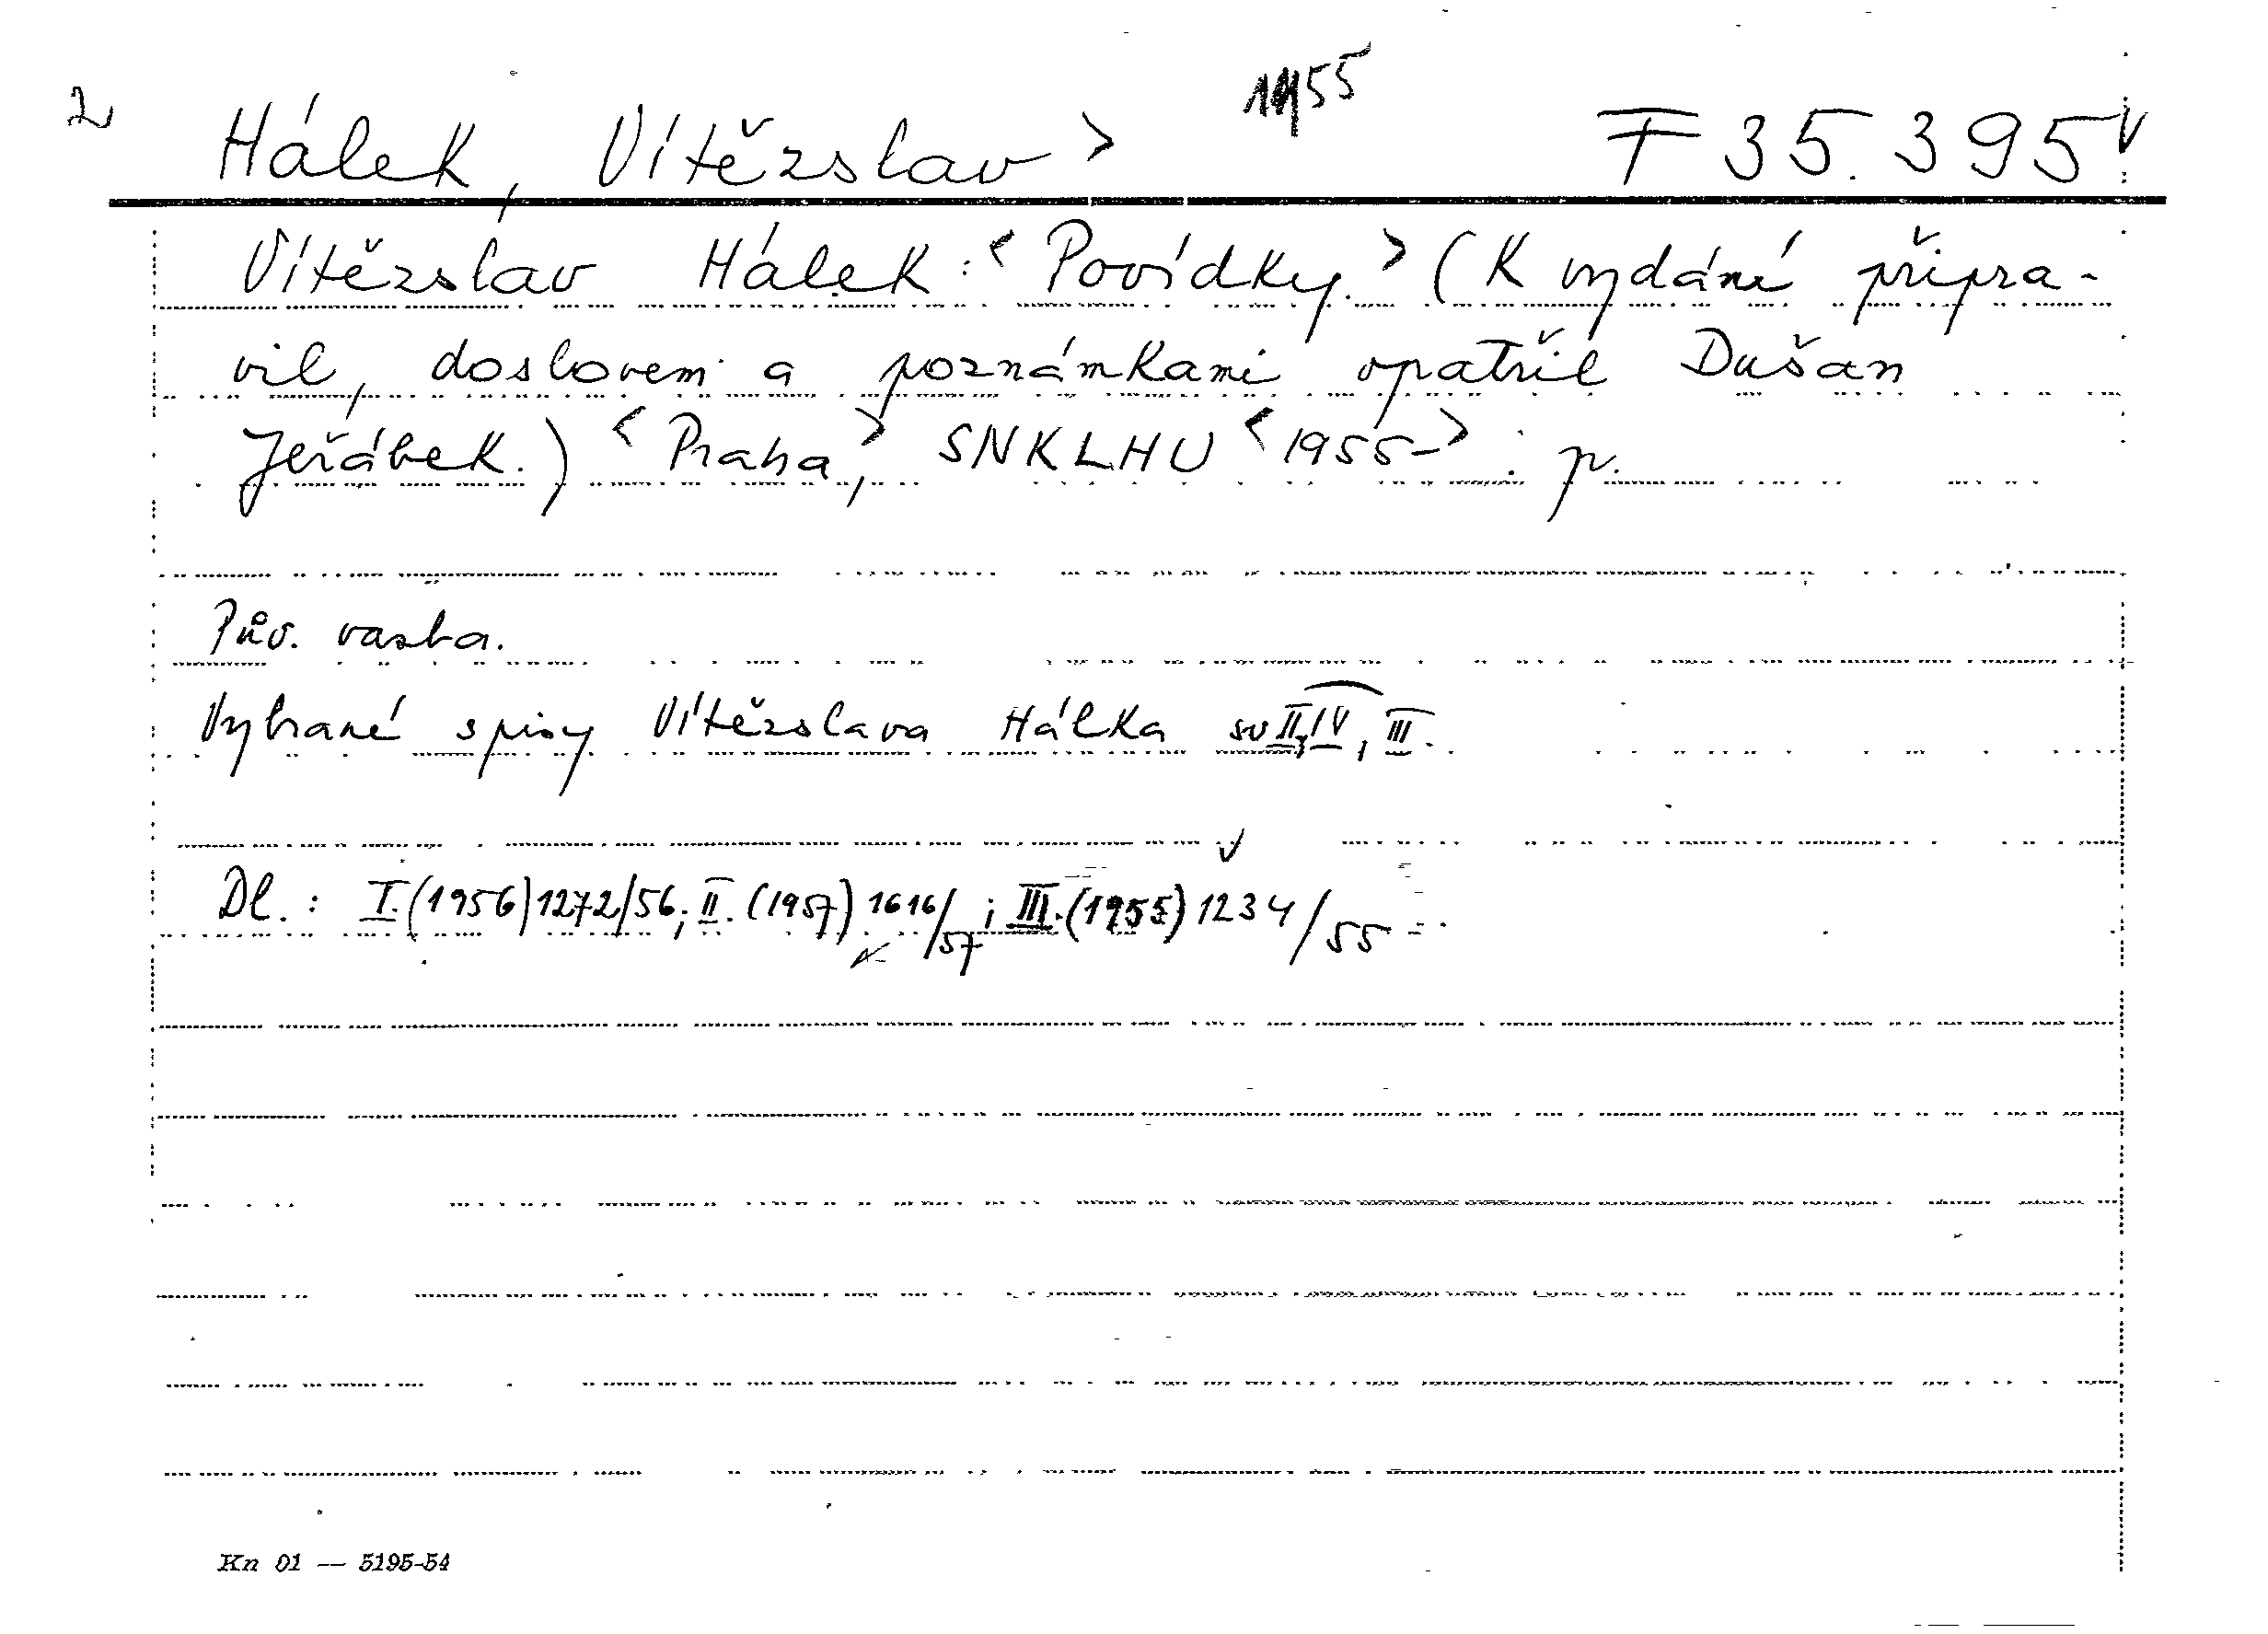 2 Hálek, Vítězslav > 1955 F 35.395
Vítězslav Hálek: <Povídky.> (K vydání připra-
vil, doslovem a poznámkami opatřil Dušan
Jeřábek.) <Praha,> SNKLHU <1955-> : p.
Pův. vazba.
Vybrané spisy Vítězslava Hálka sv II, IV, III.
Dl.: I. (1956) 1272/56; II. (1957) 1616/57; III. (1955) 1234/55
Kn 01 — 5195-54